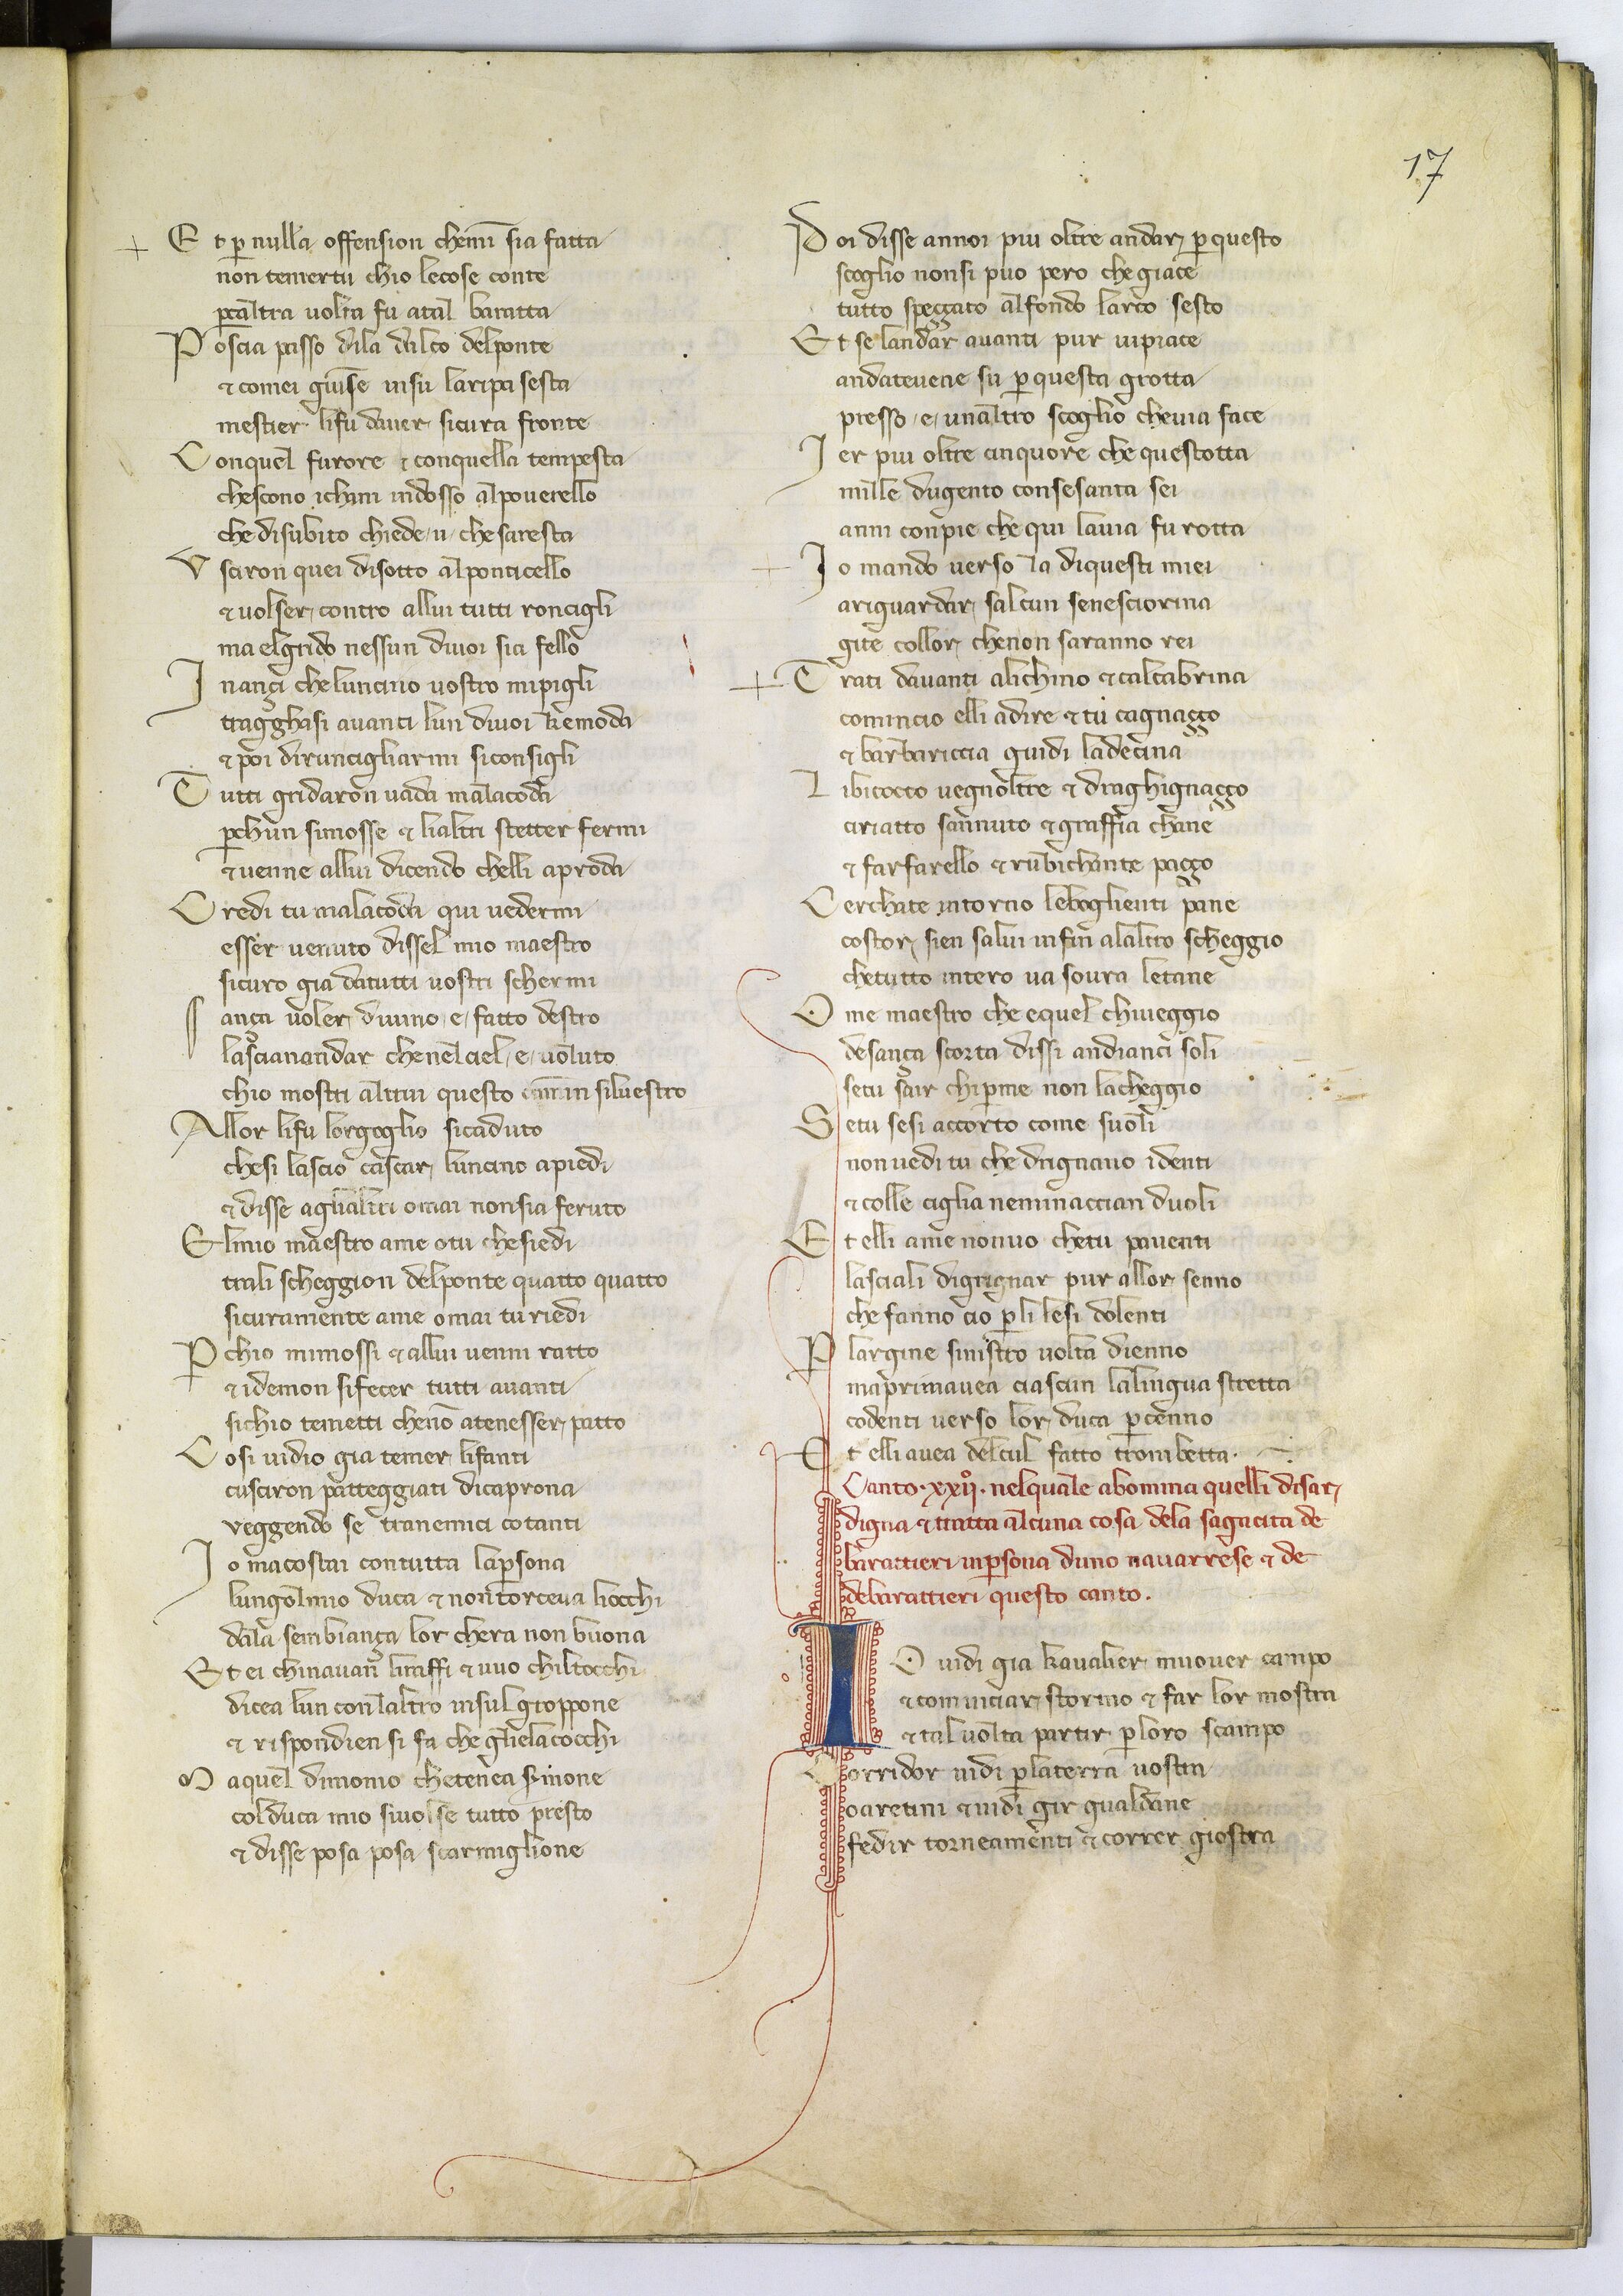 17
Et ꝑ nulla offension chemī sia fatta
non temertu chio lecose conte
ꝑcaltra uolta fu atal baratta
Poscia passo dila dalco delponte
⁊ comei giunse insu laripa sesta
mestier lifu dauer sicura fronte
Conquel furore ⁊ conquella tempesta
chescono ichani indosso alpouerello
che disubito chiede u chesaresta
Usciron quei disotto alponticello
⁊ uolser contro allui tutti roncigli
ma elgrido nessun diuoi sia fello
Inançi cheluncino uostro mipigli
tragghasi auanti lun diuoi kemoda
⁊ poi dirunciglarmi siconsigli
Tutti gridaron uada malacoda
ꝑchun simosse ⁊ lialtri stetter fermi
⁊ uenne allui dicendo chelli aproda
Credi tu malacoda qui uedermi
esser uenuto dissel mio maestro
sicuro gia datutti uostri schermi
Sança uoler diuino e fatto destro
lascianandar chenelciel e uoluto
chio mostri altrui questo camin siluestro
Allor lifu lorgoglio sicaduto
chesi lascio cascar luncino apiedi
⁊ disse aglialtri omai nonsia feruto
Elmio maestro ame otu chesiedi
trali scheggion delponte quatto quatto
sicuramente ame omai turiedi
Pchio mimossi ⁊ allui uenni ratto
⁊ idemon sifecer tutti auanti
sichio temetti chenō atenesser patto
Cosi uidio gia temer lifanti
cusciron patteggiati dicaprona
ueggendo se tranemici cotanti
Io macostai contutta laꝑsona
lungolmio duca ⁊ nontorceua liocchi
dala sembiança lor chera non buona
Et ei chinauan liraffi ⁊ uuo chiltocchi
dicea lun conlaltro insul groppone
⁊ rispondien si fa che glielacocchi
Maquel dimonio chetenea sermone
colduca mio siuolse tutto presto
⁊ disse posa posa scarmiglione
Poi disse annoi piu oltre andar ꝑquesto
scoglio nonsi puo pero chegiace
tutto speççato alfondo larco sesto
Et se landar auanti pur uipiace
andateuene su ꝑquesta grotta
presso e unaltro scoglio cheuia face
Ier piu oltre cinquore che questotta
mille dugento consesanta sei
anni conpie che qui lauia fu rotta
Io mando uerso la diquesti miei
ariguardar salcun senesciorina
gite collor chenon saranno rei
Trati dauanti alichino ⁊ calcabrina
comincio elli adire ⁊ tu cagnaçço
⁊ barbariccia guidi ladecina
Libicocco uegnoltre ⁊ draghignaçço
ciriatto sannuto ⁊ graffia chane
⁊ farfarello ⁊ rubichante paçço
Cerchate intorno leboglienti pane
costor sien salui infin alaltro scheggio
chetutto intero ua soura letane
Ome maestro che equel chiueggio
desança scorta dissi andianci soli
setu sair chiꝑme non lacheggio
Setu sesi accorto come suoli
nonuedi tu che drignano identi
⁊ colle ciglia neminaccian duoli
Et elli ame nonuo chetu pauenti
lasciali digrignar pur allor senno
che fanno cio ꝑli lesi dolenti
P largine sinistro uolta dienno
maprimauea ciascun lalingua stretta
codenti uerso lor duca ꝑcenno
Et elli auea delcul fatto trombetta.
Canto. xxij°. nelquale abomina quelli disar
digna ⁊ tratta alcuna cosa dela sagacita de
barattieri inꝑsona duno nauarrese ⁊ de
debarattieri questo canto.
IO uidi gia kaualier muouer campo
⁊ cominciar stormo ⁊ far lor mostra
⁊ tal uolta partir ꝑloro scampo
Corridor uidi ꝑlaterra uostra
oaretini ⁊ uidi gir gualdane
fedir torneamenti ⁊ correr giostra